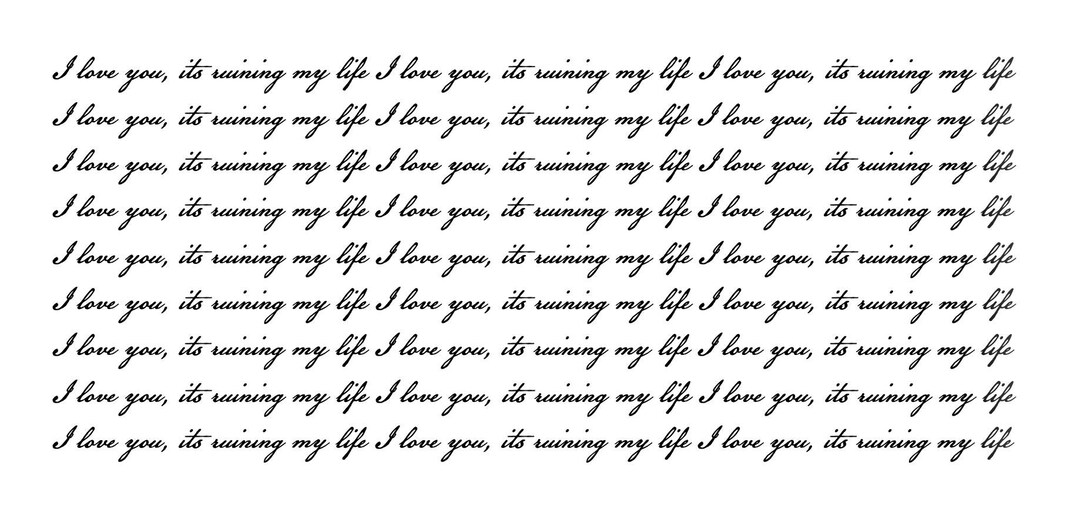 I love you, its ruining my life I love you, its ruining my life I love you, its ruining my life
I love you, its ruining my life I love you, its ruining my life I love you, its ruining my life
I love you, its ruining my life I love you, its ruining my life I love you, its ruining my life
I love you, its ruining my life I love you, its ruining my life I love you, its ruining my life
I love you, its ruining my life I love you, its ruining my life I love you, its ruining my life
I love you, its ruining my life I love you, its ruining my life I love you, its ruining my life
I love you, its ruining my life I love you, its ruining my life I love you, its ruining my life
I love you, its ruining my life I love you, its ruining my life I love you, its ruining my life
I love you, its ruining my life I love you, its ruining my life I love you, its ruining my life